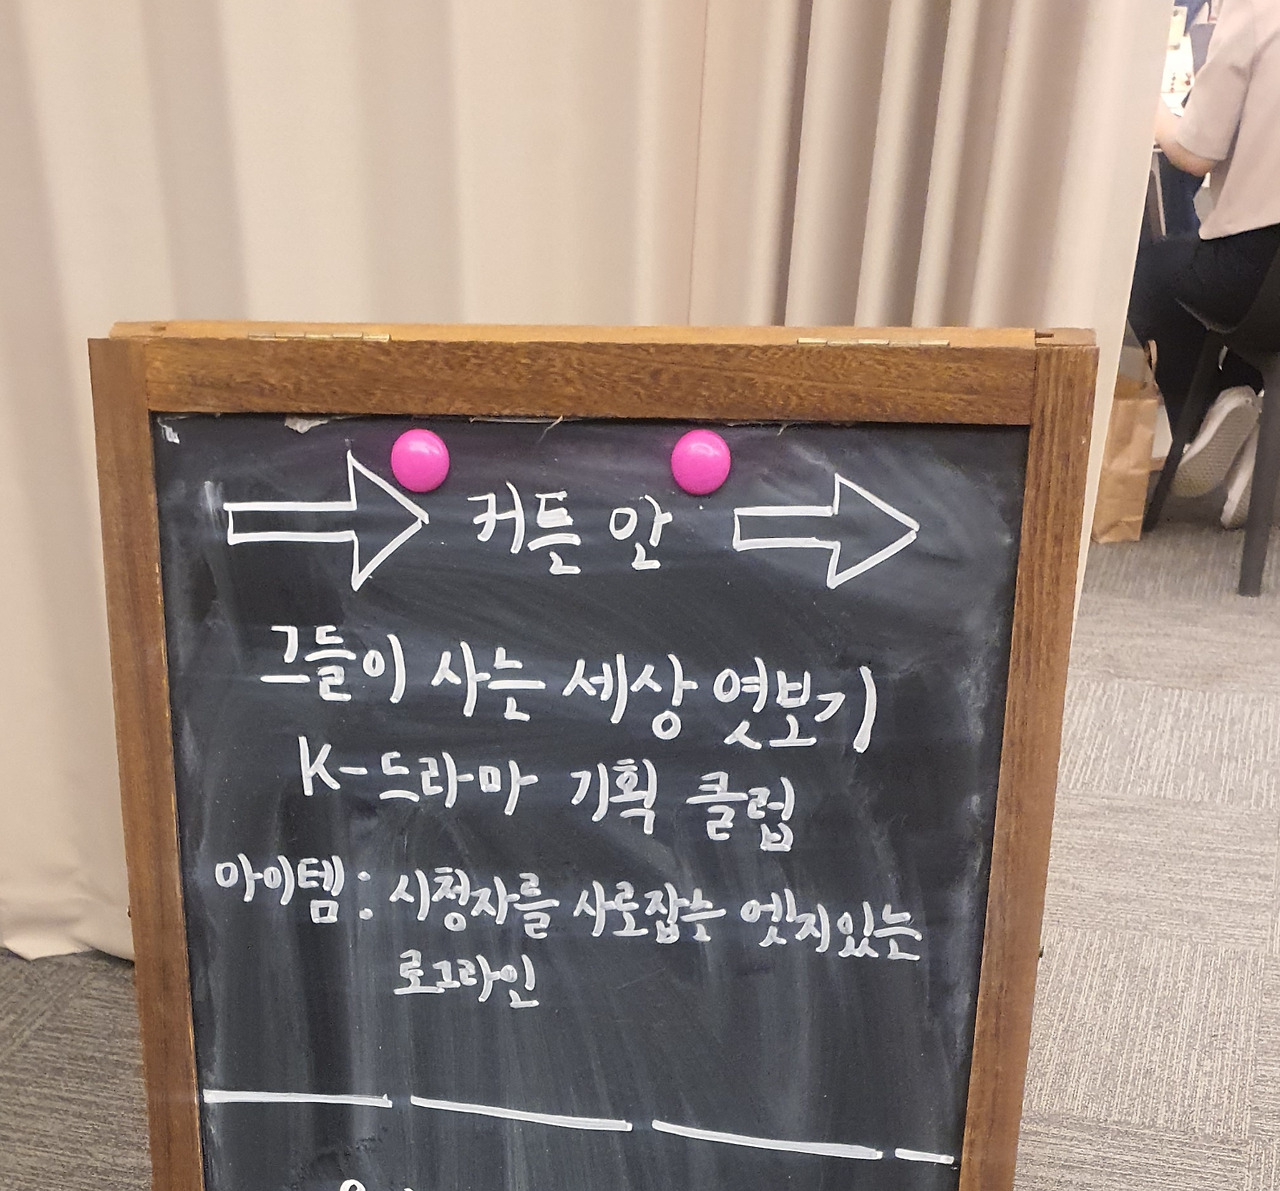 커튼 안
그들이 사는 세상 엿보기
K-드라마 기획 클럽
아이템: 시청자를 사로잡는 엣지있는
로그라인